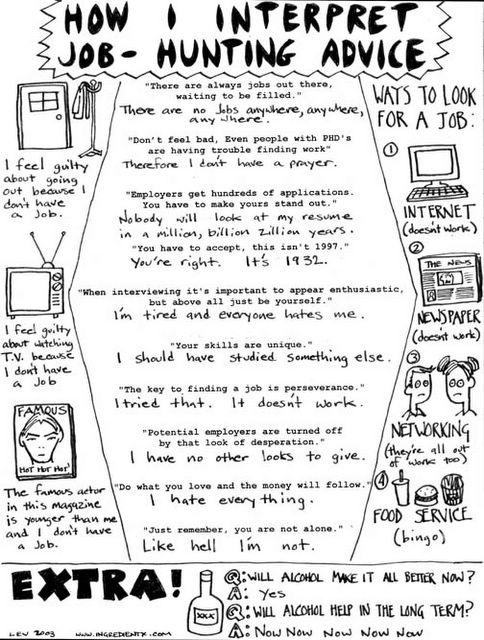 HOW I INTERPRET
JOB-HUNTING ADVICE
I feel guilty
about going
out because I
don't have
a Job.
I feel guilty
about watching
T.V. because
I don't have
a Job
FAMOUS
HOT HOT HOT
The famous actor
in this magazine
is younger than me
and I don't have
a Job.
"There are always jobs out there,
waiting to be filled."
There are no Jobs anywhere, anywhere,
any where.
"Don't feel bad, Even people with PHD's
are having trouble finding work"
Therefore I don't have a prayer.
"Employers get hundreds of applications.
You have to make yours stand out."
Nobody will look at my resume
in a million, billion zillion years.
"You have to accept, this isn't 1997."
You're right. It's 1932.
"When interviewing it's important to appear enthusiastic,
but above all just be yourself."
I'm tired and everyone hates me.
"Your skills are unique."
I should have studied something else.
"The key to finding a job is perseverance."
I tried that. It doesn't work.
"Potential employers are turned off
by that look of desperation."
I have no other looks to give.
"Do what you love and the money will follow."
I hate everything.
"Just remember, you are not alone."
Like hell I'm not.
WAYS TO LOOK
FOR A JOB:
1
INTERNET
(doesn't work)
2
THE NEWS
NEWSPAPER
(doesn't work)
3
NETWORKING
(they're all out
of work too)
4
FOOD SERVICE
(bingo)
EXTRA!
XXX
Q: WILL ALCOHOL MAKE IT ALL BETTER NOW?
A: Yes
Q: WILL ALCOHOL HELP IN THE LONG TERM?
A: NOW NOW NOW NOW NOW
LEV 2003 WWW.INGREDIENTX.COM